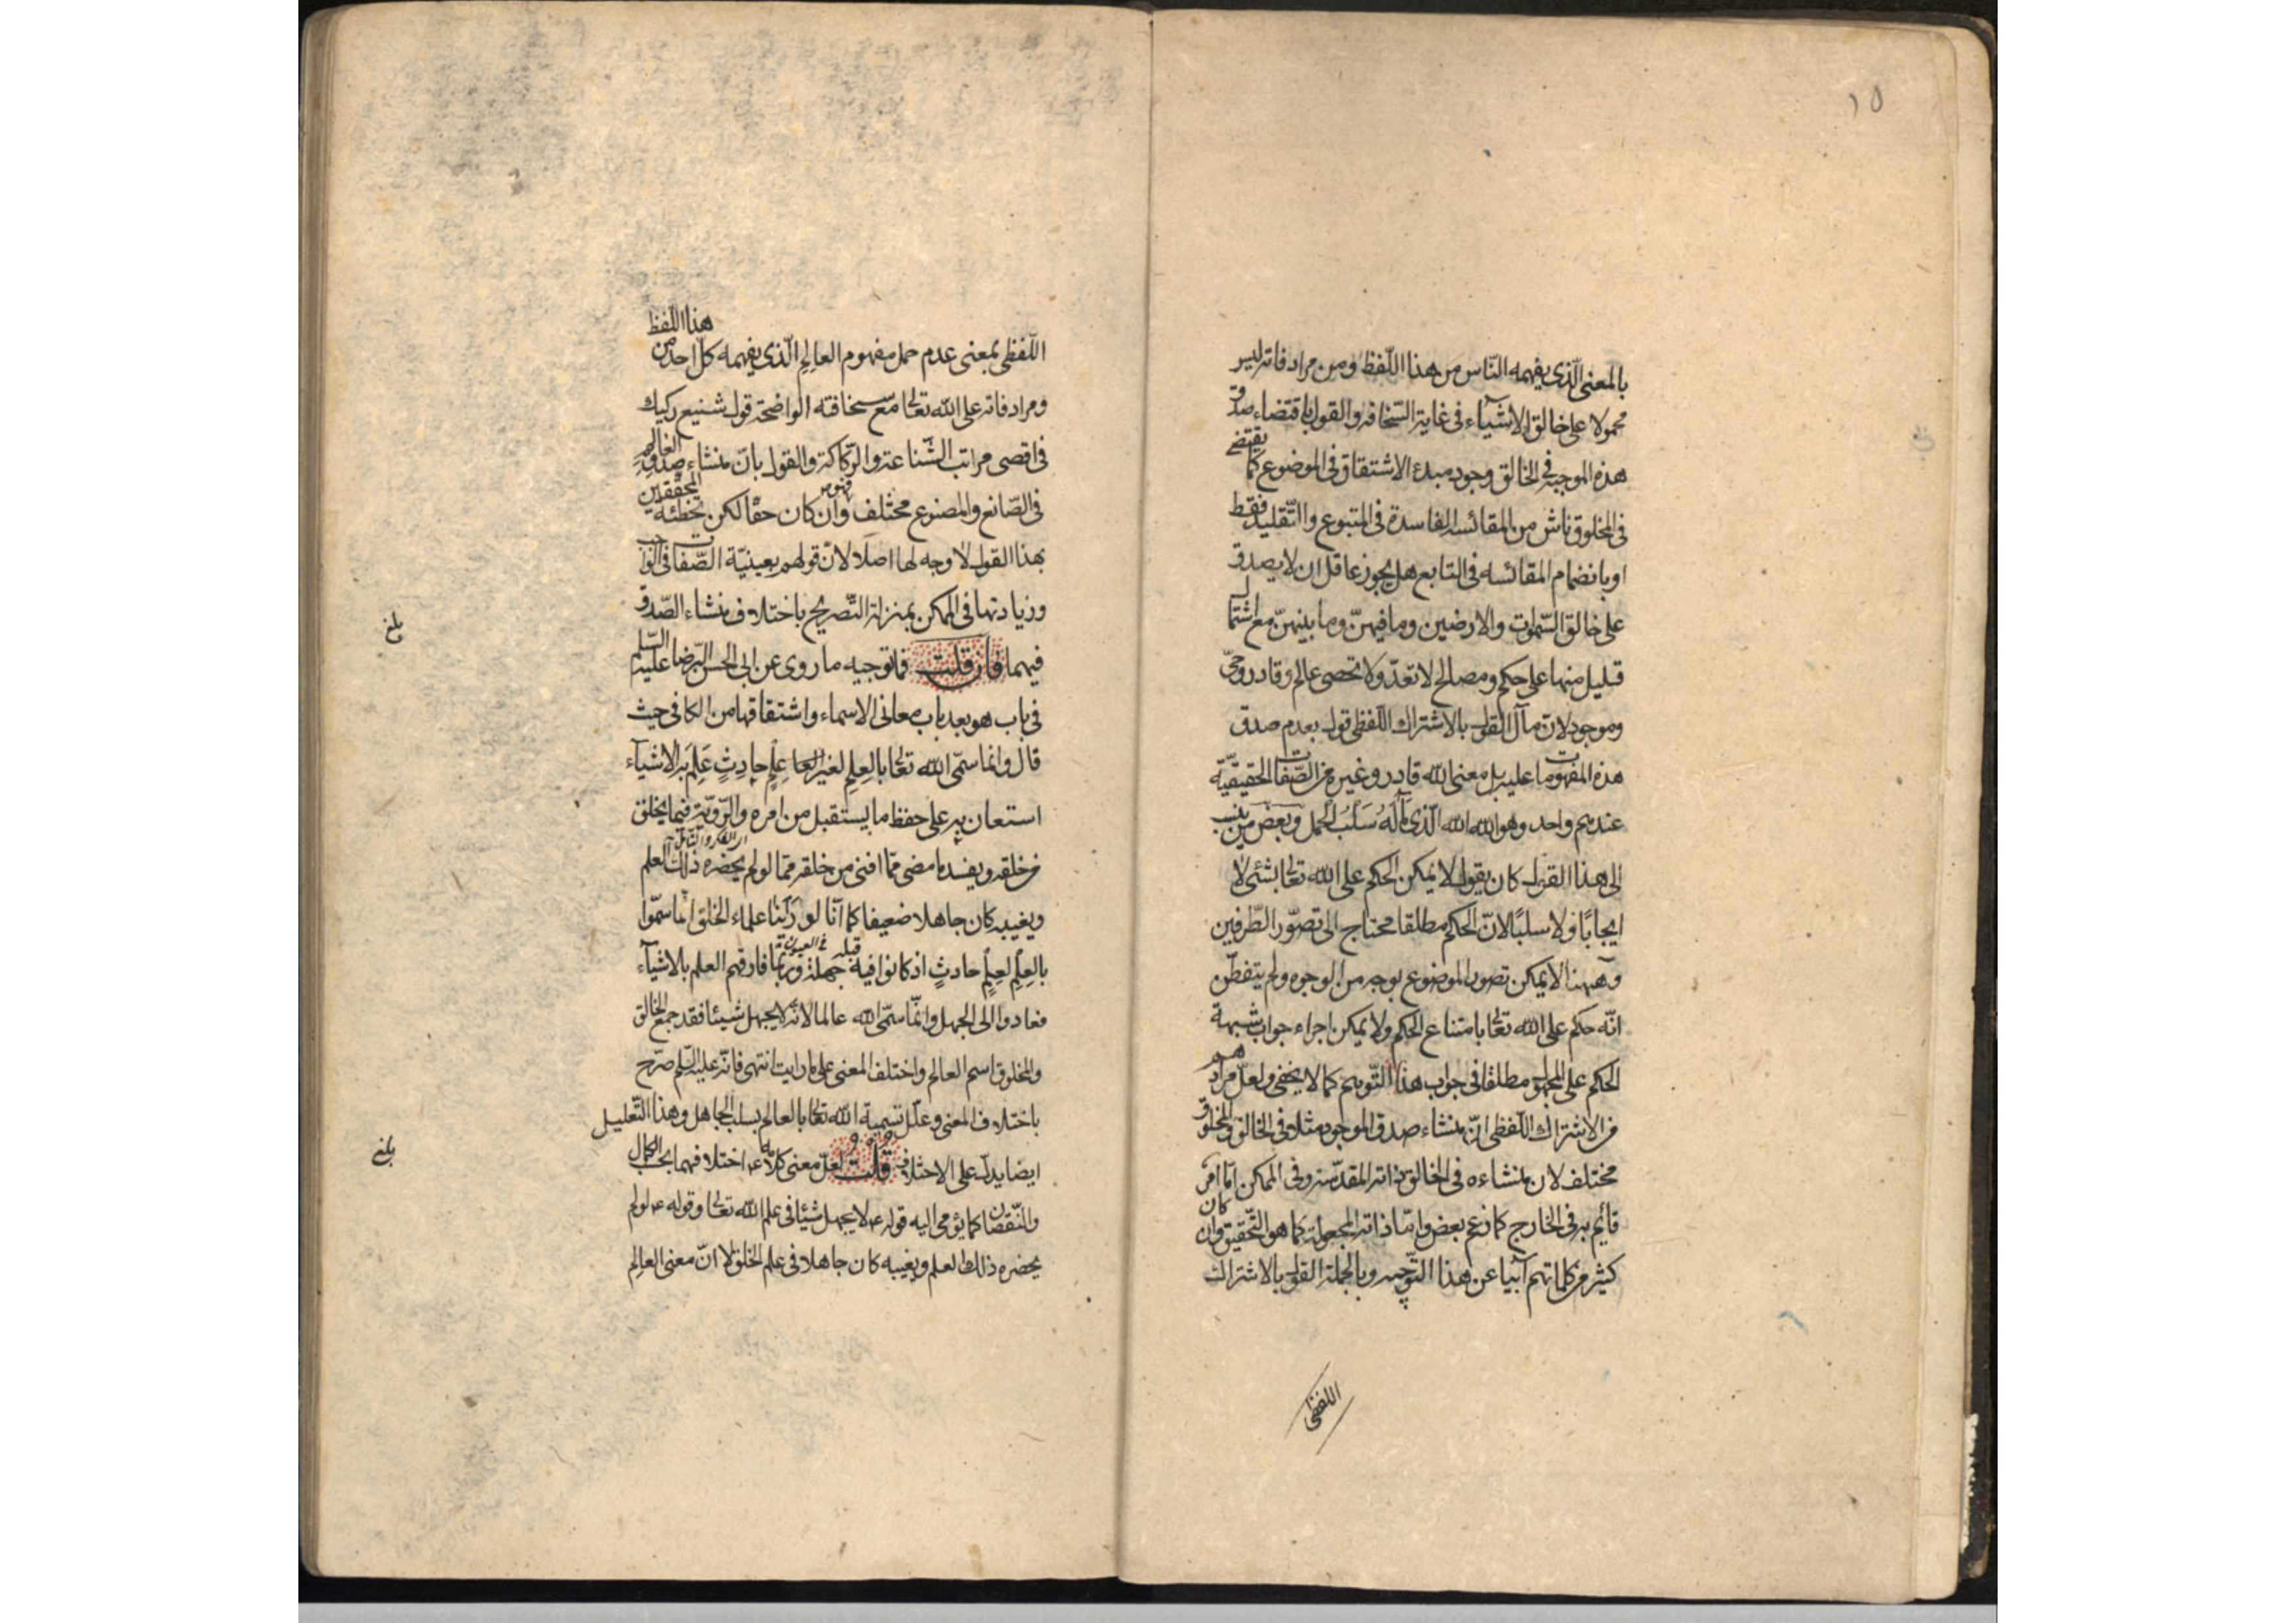 ١٥
بالمعنى الّذى يفهمه النّاس من هذا اللّفظ ومن مرادفاته ليس
محمولا على خالق الاشيآء فى غاية السّخافه والقول باقتضاء صدق
هذه الموجبة فى الخالق وجود مبدء الاشتقاق فى الموضوع كما يقتضى
فى المخلوق ناش من المقائسه الفاسدة فى المتبوع والتّقليد فقط
او بانضمام المقائسه فى التابع هل يجوز عاقل ان لا يصدق
على خالق السّموات والارضين وما فيهنّ وما بينهنّ مع اشتمال
قليل منها على حكم ومصالح لا تعدّ ولا تحصى عالم وقادر وحىّ
وموجود لان مآل القول بالاشتراك اللّفظى قول بعدم صدق
هذه المفهومات عليه بل معنى الله قادر وغيره من الصّفات الحقيقيّة
عندهم واحد وهو الله الله الّذى مآله سلب الحمل وبعض من ينسب
الى هذا القول كان يقول لا يمكن الحكم على الله تعالى بشئ لا
ايجابًا ولا سلبًا لانّ الحكم مطلقا محتاج الى تصوّر الطّرفين
وههنا لا يمكن تصور الموضوع بوجه من الوجوه ولم يتفطّن
انّه حكم على الله تعالى بامتناع الحكم ولا يمكن اجراء جواب شبهة
الحكم على المجهول مطلقا فى جواب هذا التّوهم كما لا يخفى ولعلّ مرادهم
من الاشتراك اللّفظى انّ منشاء صدق الموجود مثلا فى الخالق والمخلوق
مختلف لان منشاءه فى الخالق ذاته المقدّسة وفى الممكن امّا امر
قايم به فى الخارج كما زعم بعض وامّا ذاته المجعولة كما هو التّحقيق وان كان
كثير من كلماتهم آبيا عن هذا التّوجيه وبالجملة القول بالاشتراك
اللفظى
اللّفظى بمعنى عدم حمل مفهوم العالِم الّذى يفهمه كلّ احد من هذا اللّفظ
ومرادفاته على الله تعالى مع سخافته الواضحة قول شنيع ركيك
فى اقصى مراتب الشّناعة والرّكاكة والقول بانّ منشاء صدق العالم
فى الصّانع والمصنوع مختلف وان كان حقّا لكن تخطئة المحقّقين
بهذا القول لا وجه لها اصلا لانّ قولهم بعينيّة الصّفات فى الواجب
وزيادتها فى الممكن بمنزلة التّصريح باختلاف منشاء الصّدق
فيهما فان قلت فما توجيه ما روى عن ابى الحسن الرّضا عليه السّلم
فى باب هو بعد باب معانى الاسماء واشتقاقها من الكافى حيث
قال وانما سمّى الله تعالى بالعِلمِ لغير عِلمٍ حادِثٍ عَلِمَ به الاشيآء
استعان به على حفظ ما يستقبل من امره والرّويّة فيما يخلق
اى الفكر والتأمّل
من خلقه ويفسد ما مضى ممّا افنى من خلقه ممّا لو لم يحضره ذلك العلم
ويغيبه كان جاهلا ضعيفا كما انّا لو رأينا علماء الخلق انّما سمّوا
بالعِلمِ لعِلمٍ حادثٍ اذ كانوا فيه جهلة وربّما فارقهم العلم بالاشيآء
فعادوا الى الجهل وانّما سمّى الله عالما لانّه لا يجهل شيئا فقد جمع الخالق
والمخلوق اسم العالم واختلف المعنى على ما رايت انتهى فانّه عليه السّلم صرّح
باختلاف المعنى وعلّل تسمية الله تعالى بالعالم بسلب الجاهل وهذا التّعليل
ايضا يدل على الاختلاف قلت لعلّ معنى كلامه ع اختلافهما بحسب الكمال
والنّقصان كما يؤمى اليه قوله ع لا يجهل شيئا فى علم الله تعالى وقوله ع لو لم
يحضره ذلك العلم ويغيبه كان جاهلا فى علم الخلق لا انّ معنى العالِم
بلغ
بلغ